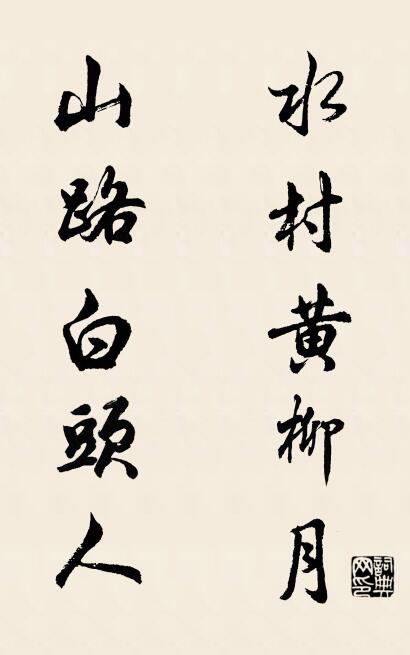 水村黄柳月
山路白頭人
詞典网印